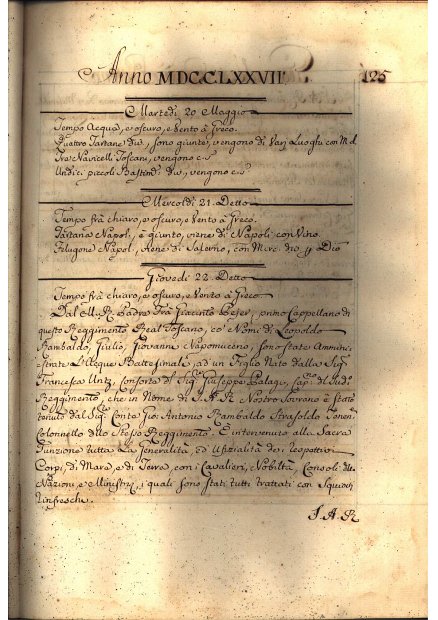 Anno MDCCLXXVII 125
Martedì 20 Maggio
Tempo Acqua, e oscuro, e Vento à Greco.
Quattro Tartane div.e, sono giunte, vengono di Varj Luoghi con M.d.
Tre Navicelli Toscani, vengono c.s.
Undici piccoli Bastim.ti div., vengono c.s.
Mercoldì 21. Detto
Tempo frà chiaro, e oscuro, e Vento à Greco.
Tartana Napol., è giunto, viene di Napoli con Vino.
Filugone Napol., Viene di Salerno, con Merc. div.
Giovedì 22. Detto
Tempo frà chiaro, e oscuro, e Vento à Greco.
Dal M. R. Padre Frà Giacinto primo Cappellano di
questo Reggimento Real Toscano, co' Nomi di Leopoldo
Rambaldo, Giulio, Giovanni Napomuceno, sono state Ammini-
strate L'Acque Battesimali, ad un Figlio Nato dalla Sig.ra
Francesca Consorte di Sig.e Giuseppe di sud.o
Reggimento, che in Nome di S. A. R. Nostro Sovrano è stato
tenuto dal Sig.e Conte Gio: Antonio Rambaldo Strasoldo Tenen.
Colonnello dello Stesso Reggimento. È intervenuto alla Sacra
Funzione tutta La Generalità, ed Ufizialità de' respettivi
Corpi, di Mare, e di Terra, con i Cavalieri, Nobiltà, Consoli
Nazioni, e Ministri, i quali sono stati tutti trattati con Squisiti
rinfreschi.
S. A. R.